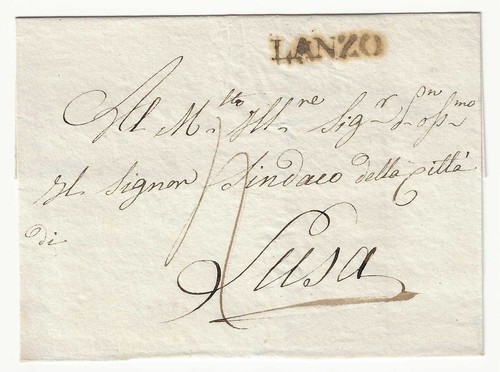 LANZO
Al M.to Ill.re Sig.r
Il Signor Sindaco della Città
di
Susa